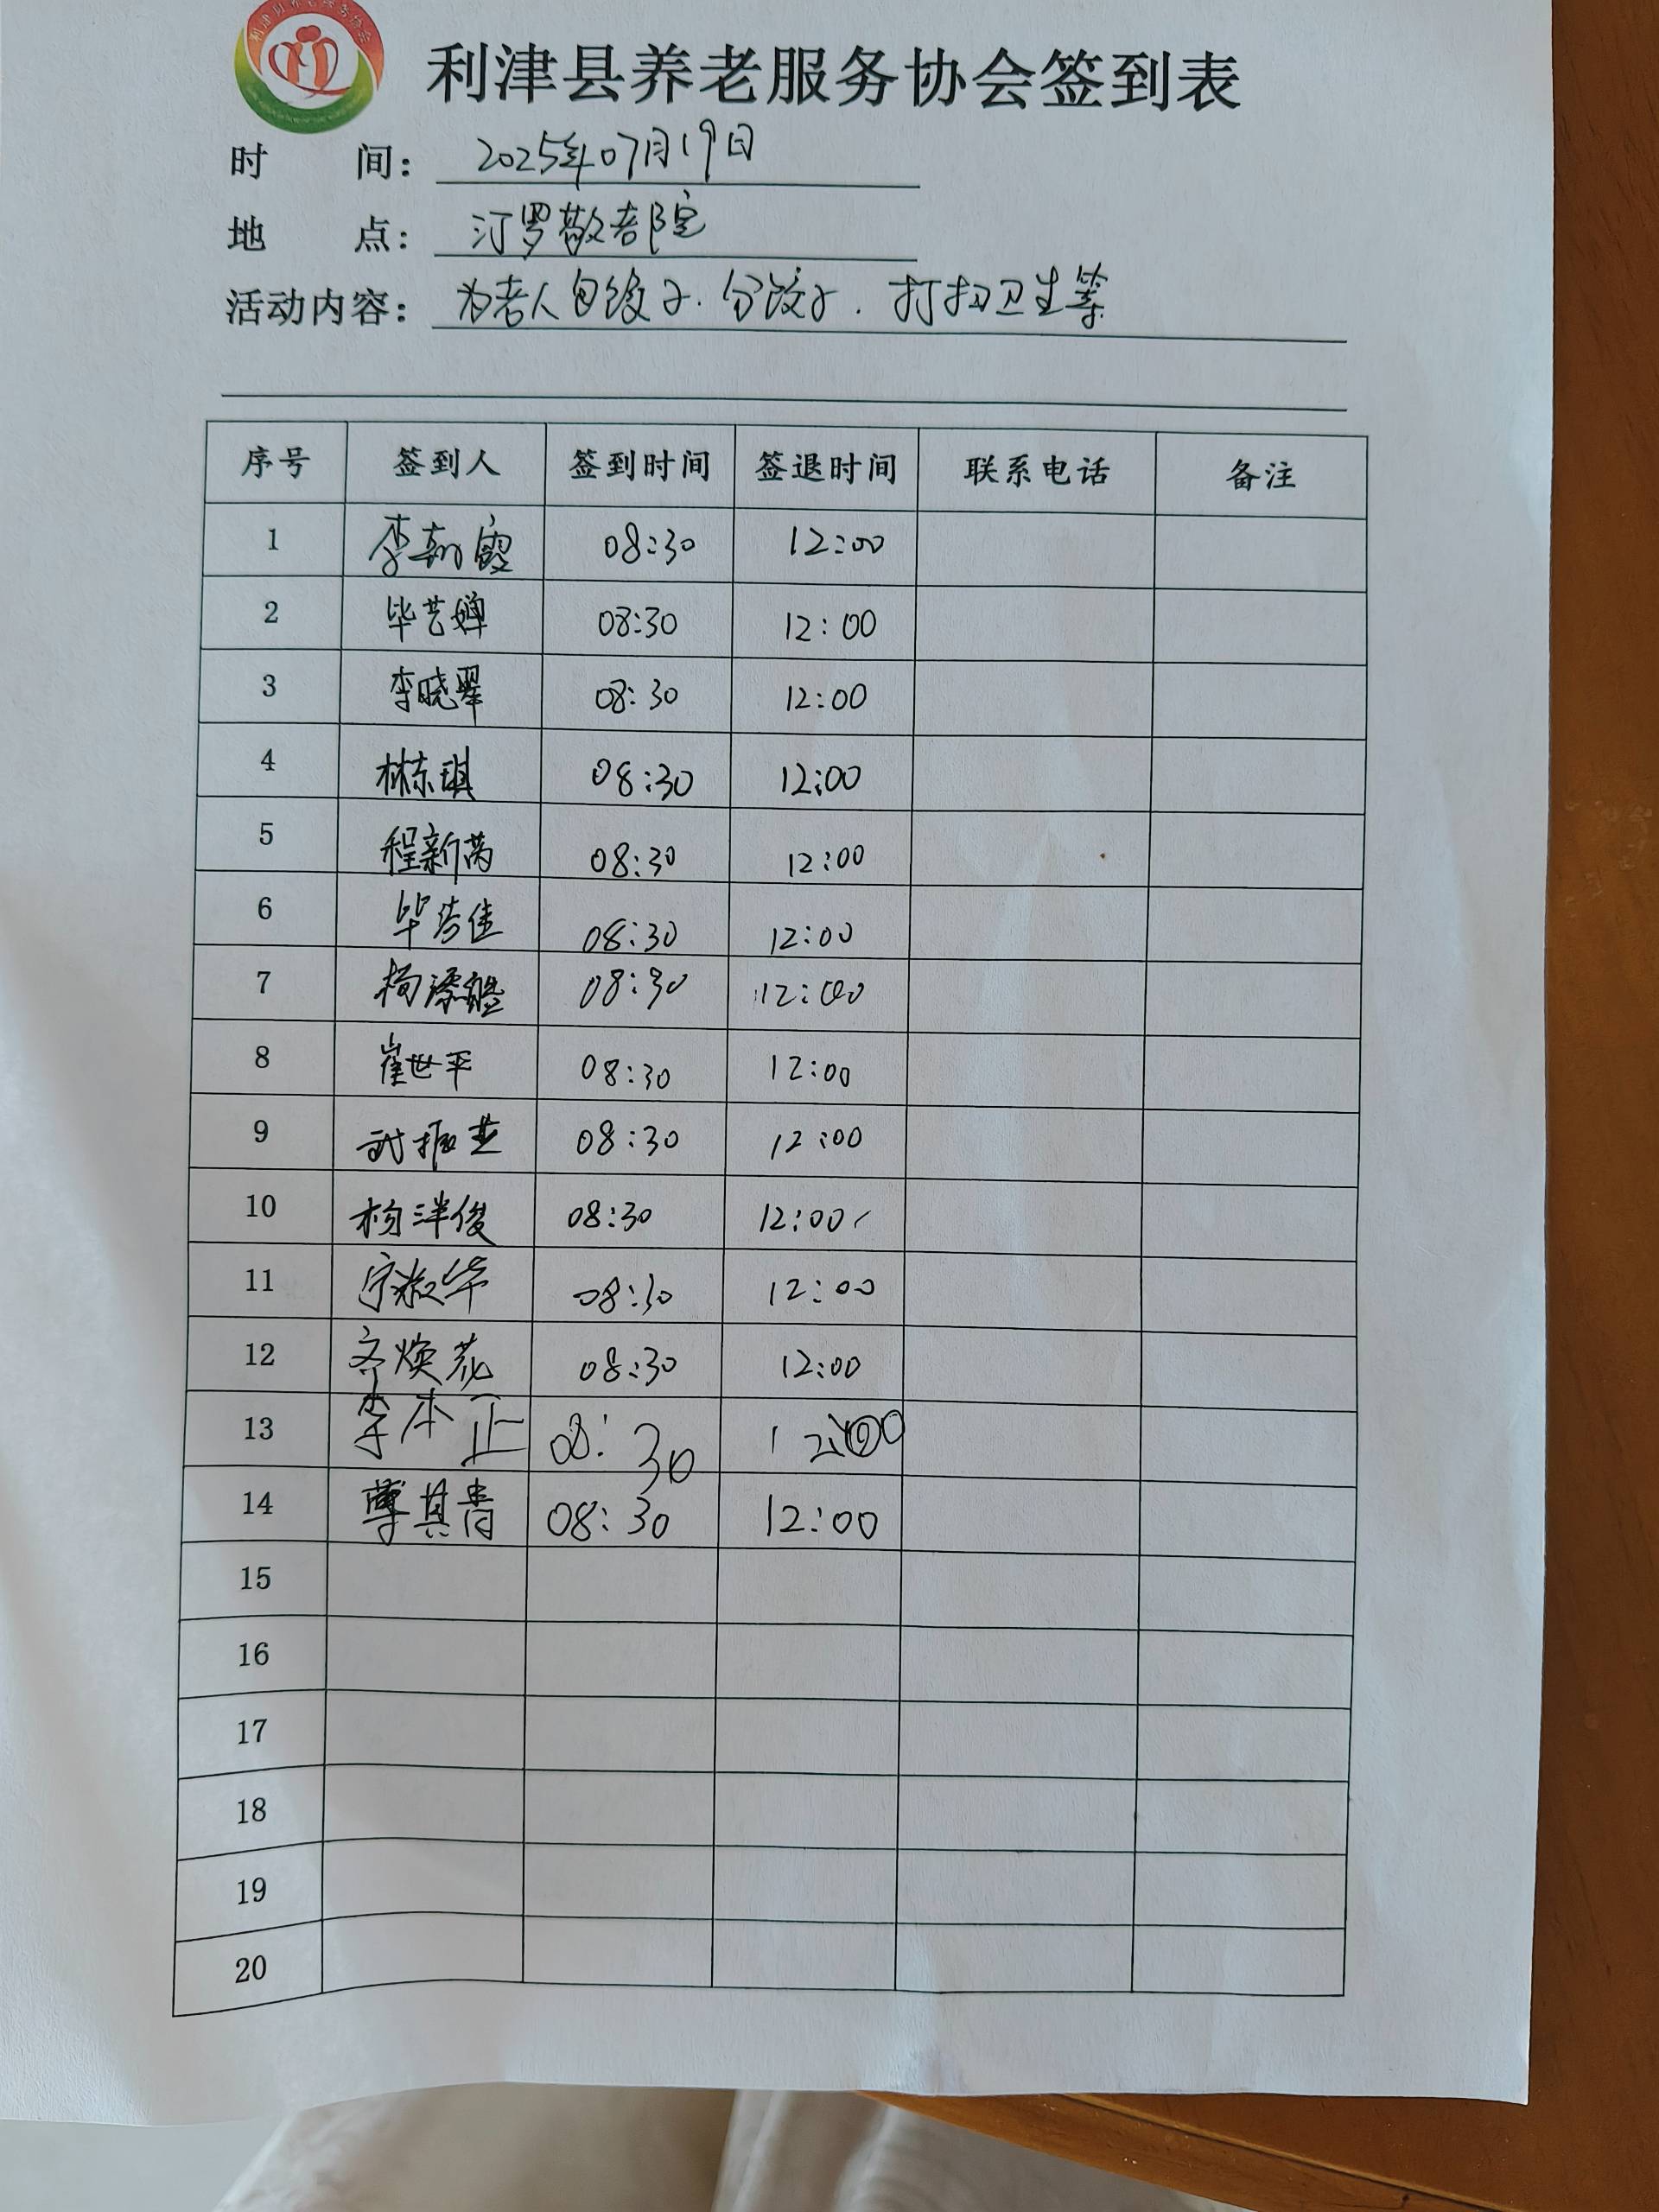 利津县养老服务协会
利津县养老服务协会签到表
时 间: 2025年07月19日
地 点: 汀罗敬老院
活动内容: 为老人包饺子.分饺子.打扫卫生等
序号 签到人 签到时间 签退时间 联系电话 备注
1 李朝霞 08:30 12:00
2 毕艺婵 08:30 12:00
3 李晓翠 08:30 12:00
4 林东琪 08:30 12:00
5 程新芮 08:30 12:00
6 毕 佳 08:30 12:00
7 杨 08:30 12:00
8 崔世平 08:30 12:00
9 武振芝 08:30 12:00
10 杨洋俊 08:30 12:00
11 宁淑华 08:30 12:00
12 齐焕花 08:30 12:00
13 李本正 08:30 12:00
14 其青 08:30 12:00
15
16
17
18
19
20